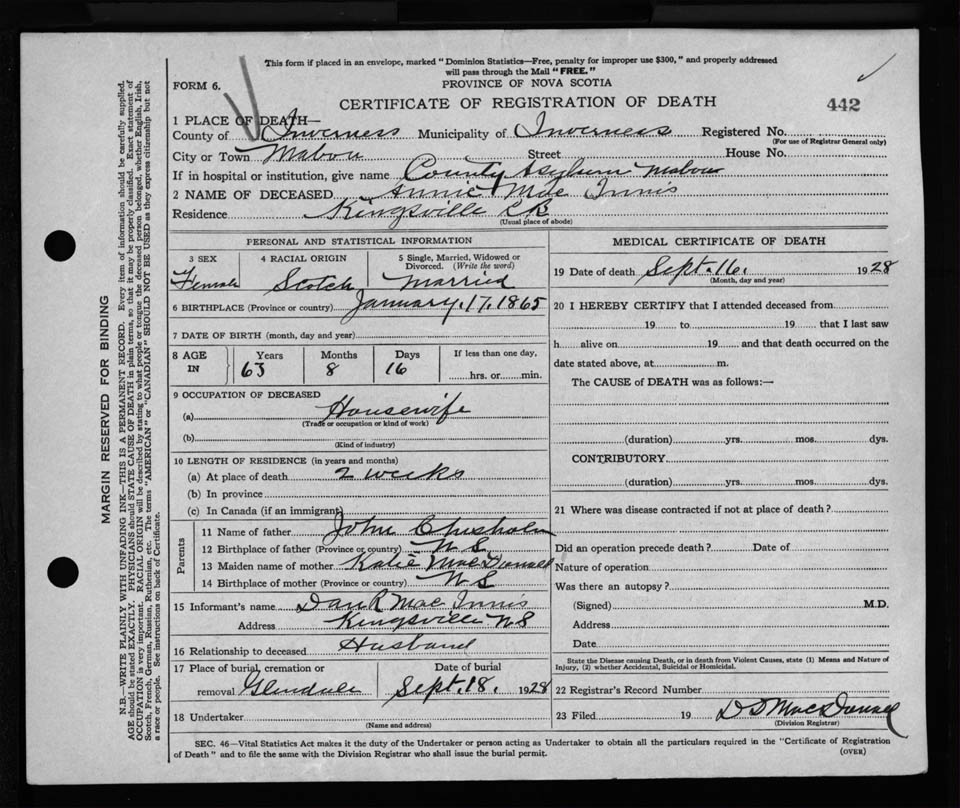 This form if placed in an envelope, marked "Dominion Statistics—Free, penalty for improper use $300," and properly addressed
will pass through the Mail "FREE."
FORM 6.
PROVINCE OF NOVA SCOTIA
CERTIFICATE OF REGISTRATION OF DEATH
442
1 PLACE OF DEATH—
County of Inverness Municipality of Inverness Registered No.
(For use of Registrar General only)
City or Town Mabou Street House No.
If in hospital or institution, give name County Asylum Mabou
2 NAME OF DECEASED Annie Mac Innis
Residence Kingsville CB
(Usual place of abode)
PERSONAL AND STATISTICAL INFORMATION
3 SEX 4 RACIAL ORIGIN 5 Single, Married, Widowed or
Divorced. (Write the word)
Female Scotch Married
6 BIRTHPLACE (Province or country) January 17, 1865
7 DATE OF BIRTH (month, day and year)
8 AGE IN Years Months Days If less than one day,
63 8 16 hrs. or min.
9 OCCUPATION OF DECEASED
(a) Housewife
(Trade or occupation or kind of work)
(b)
(Kind of industry)
10 LENGTH OF RESIDENCE (in years and months)
(a) At place of death 2 weeks
(b) In province
(c) In Canada (if an immigrant)
Parents
11 Name of father John Chisholm
12 Birthplace of father (Province or country) N S
13 Maiden name of mother Katie MacDonald
14 Birthplace of mother (Province or country) N S
15 Informant's name Dan R Mac Innis
Address Kingsville N S
16 Relationship to deceased Husband
17 Place of burial, cremation or Date of burial
removal Glendale Sept. 18. 1928
18 Undertaker
(Name and address)
MEDICAL CERTIFICATE OF DEATH
19 Date of death Sept. 16. 1928
(Month, day and year)
20 I HEREBY CERTIFY that I attended deceased from
19 to 19 that I last saw
h alive on 19 and that death occurred on the
date stated above, at m.
The CAUSE of DEATH was as follows:—
(duration) yrs. mos. dys.
CONTRIBUTORY
(duration) yrs. mos. dys.
21 Where was disease contracted if not at place of death?
Did an operation precede death? Date of
Nature of operation
Was there an autopsy?
(Signed) M.D.
Address
Date
State the Disease causing Death, or in death from Violent Causes, state (1) Means and Nature of
Injury, (2) whether Accidental, Suicidal or Homicidal.
22 Registrar's Record Number
23 Filed 19 D D MacDonald
(Division Registrar)
SEC. 46—Vital Statistics Act makes it the duty of the Undertaker or person acting as Undertaker to obtain all the particulars required in the "Certificate of Registration
of Death" and to file the same with the Division Registrar who shall issue the burial permit.
(OVER)
MARGIN RESERVED FOR BINDING
N.B.—WRITE PLAINLY WITH UNFADING INK—THIS IS A PERMANENT RECORD. Every item of information should be carefully supplied.
AGE should be stated EXACTLY. PHYSICIANS should STATE CAUSE OF DEATH in plain terms, so that it may be properly classified. Exact statement of
OCCUPATION is very important. RACIAL ORIGIN will be described by stating to what people or tongue the deceased person belonged, whether English, Irish,
Scotch, French, German, Russian, Ruthenian, etc. The terms "AMERICAN" or "CANADIAN" SHOULD NOT BE USED as they express citizenship but not
a race or people. See instructions on back of Certificate.